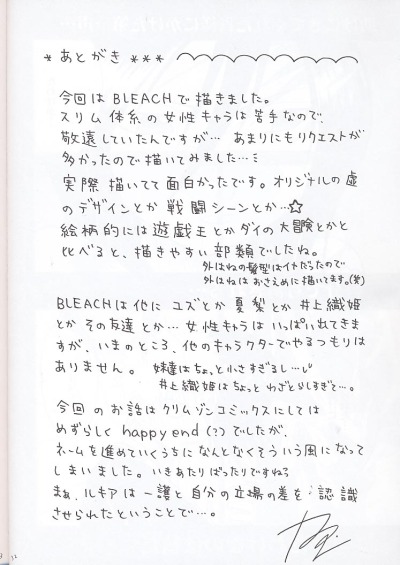 *あとがき***
今回はBLEACHで描きました。
スリム体系の女性キャラは苦手なので、
敬遠していたんですが… あまりにもリクエストが
多かったので描いてみました…ミ
実際描いてて面白かったです。オリジナルの虚
のデザインとか戦闘シーンとか…☆
絵柄的には遊戯王とかダイの大冒険とかと
比べると、描きやすい部類でしたね。
外はねの髪型はイヤだったので
外はねはおさえめに描いてます。(笑)
BLEACHは他に ユズとか 夏梨とか 井上織姫
とか その友達とか… 女性キャラは いっぱいれてきま
すが、いまのところ、他のキャラクターでやるつもりは
ありません。 妹達はちょっと小さすぎるし…
井上織姫はちょっと わざとらしすぎて…。
今回のお話はクリムゾンコミックスにしては
めずらしく happy end (?) でしたが、
ネームを進めていくうちになんとなくそういう風になって
しまいました。いきあたりばったりですね
まぁ、ルキアは一護と自分の立場の差を認識
させられたということで…。